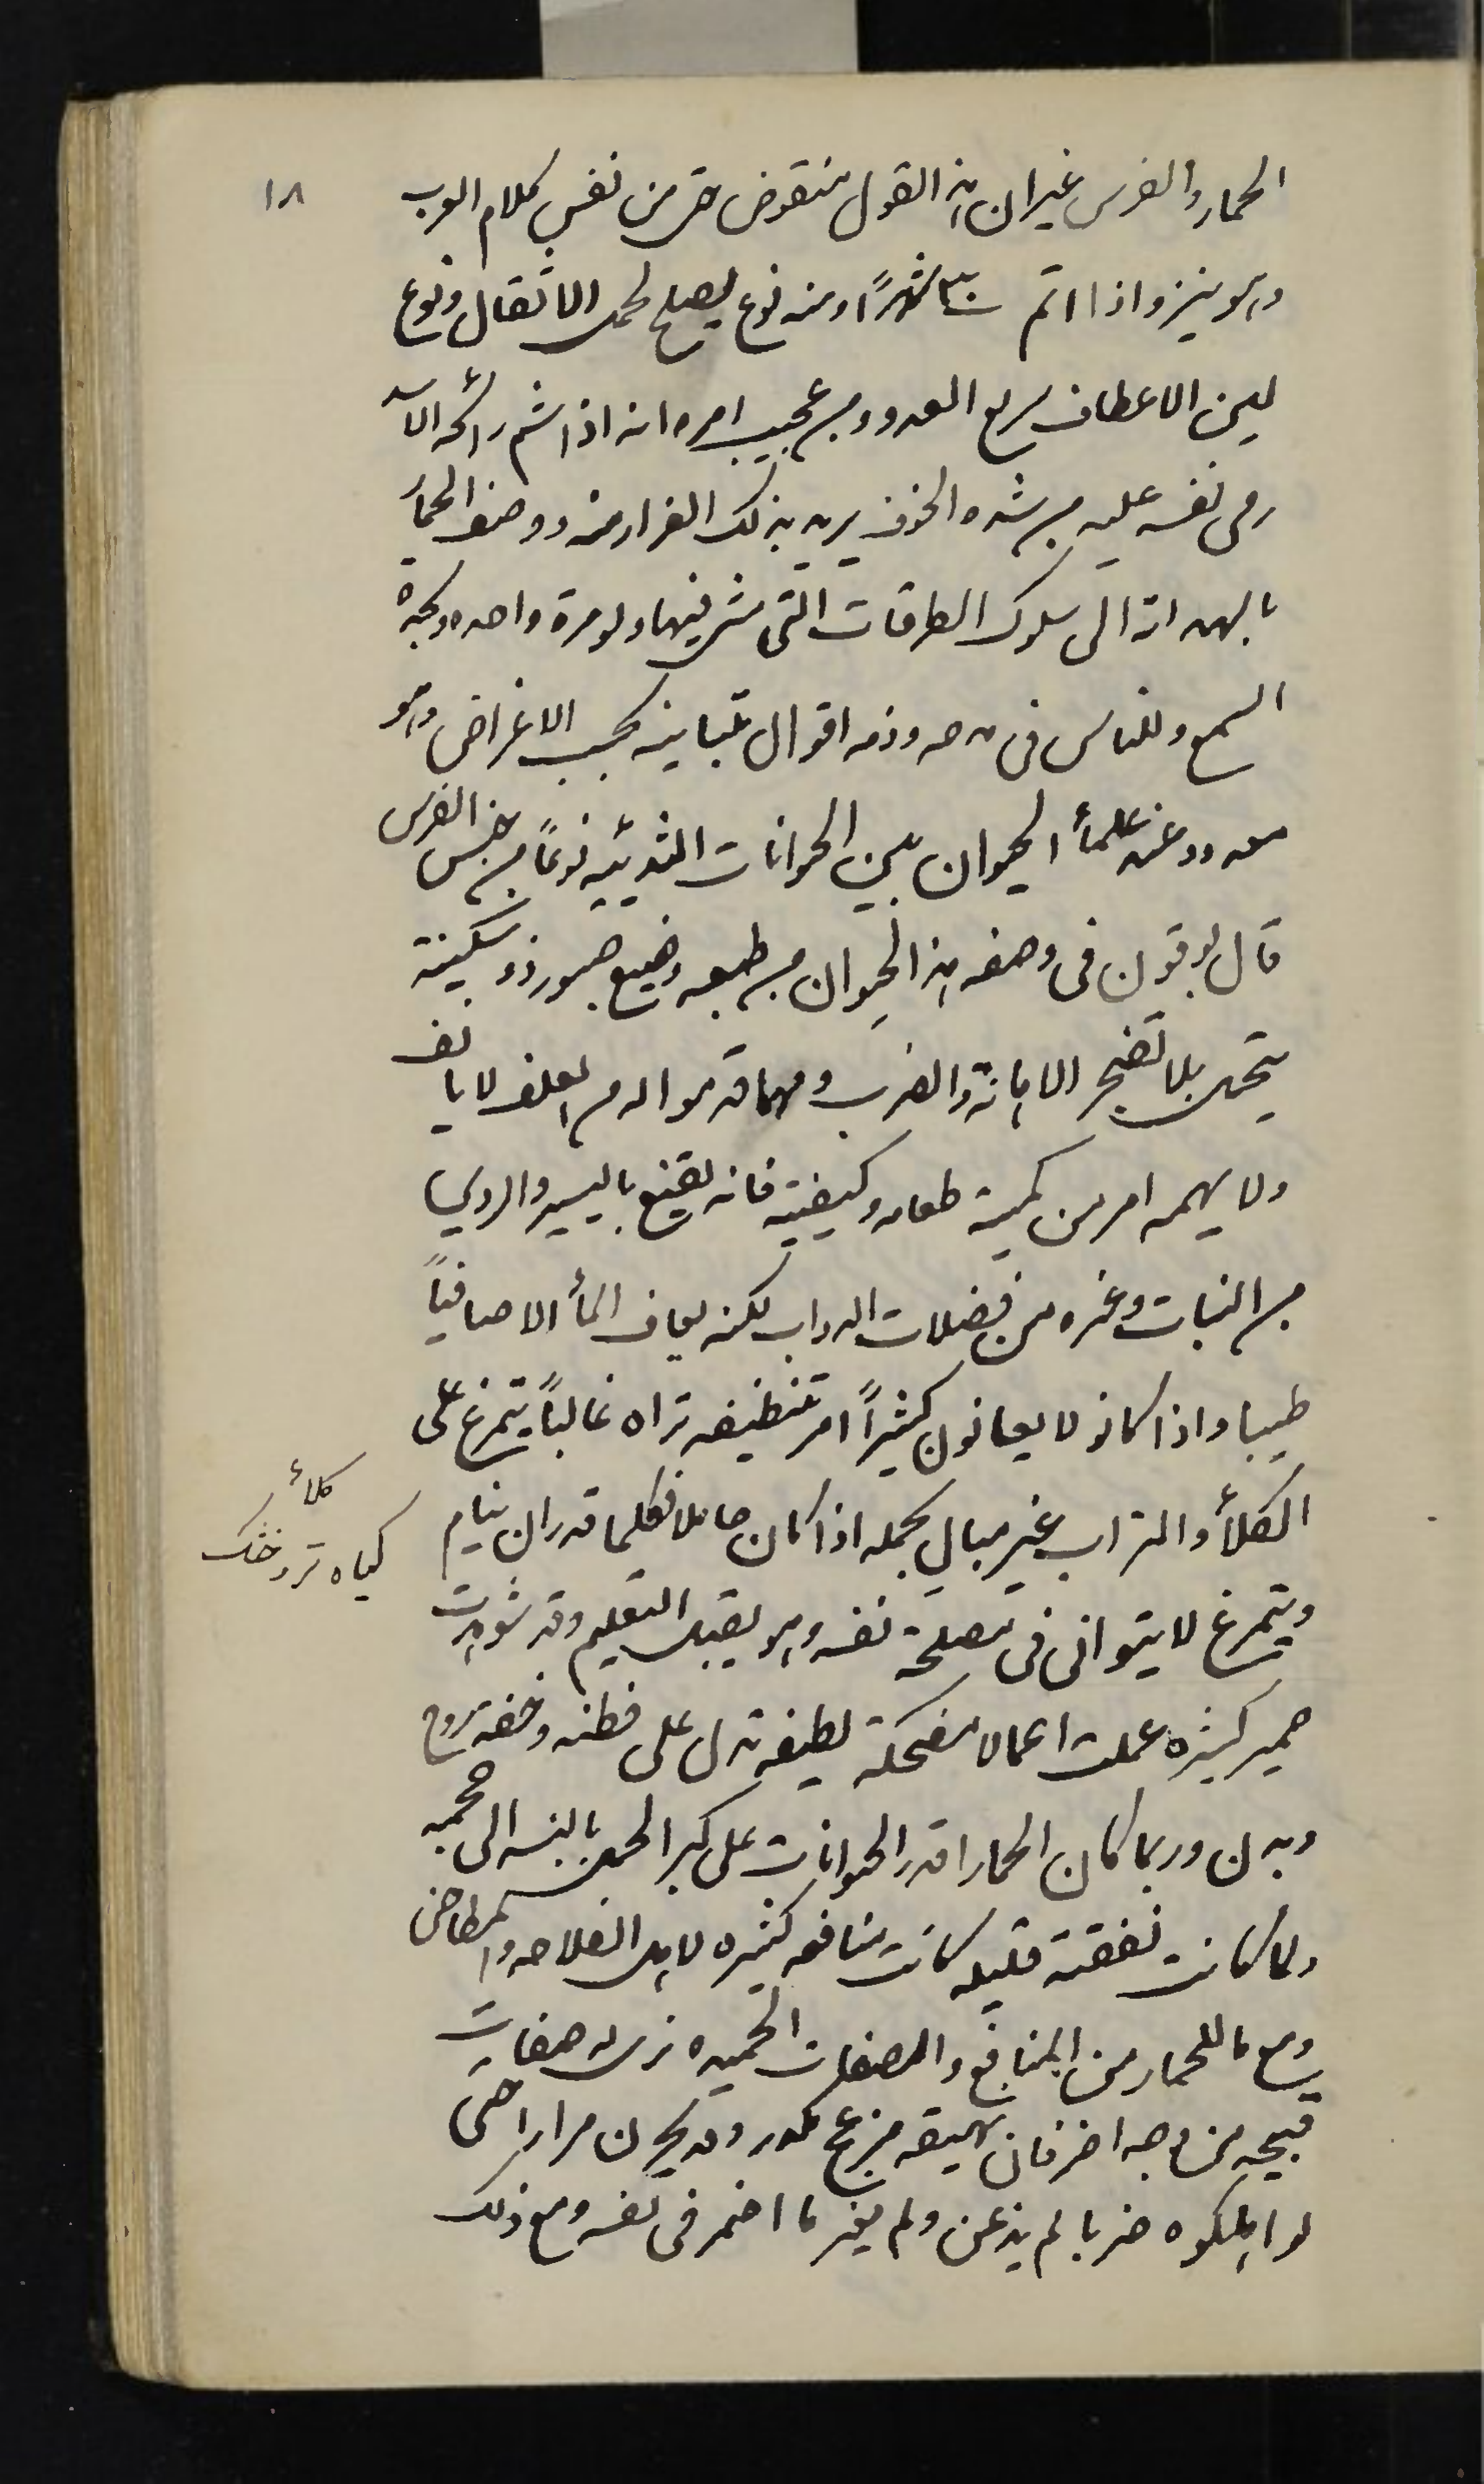 ١٨
الحمار والفرس غير ان هذا القول منقوض حتى من نفس كلام العرب
وهو ينزو اذا اتم ٣٠ شهرًا ومنه نوع يصلح لحمل الاثقال ونوع
لين الاعطاف سريع العدو ومن عجيب امره انه اذا شم رائحه الاسد
رمى نفسه عليه من شده الخوف يريد بذلك الفرار منه ووصف الحمار
بالهدايه الى سلوك الطرقات التى مشى فيها ولو مرة واحده وبحدة
السمع وللناس فى مدحه وذمه اقوال متباينه بحسب الاغراض وهو
معدود عند علمأ الحيوان بين الحيوانات الثدييه نوعًا من جنس الفرس
قال بوفون فى وصفه هذا الحيوان من طبعه وضيع صبور ذو سكينة
يتحمل بلا تضجر الاهانة والضرب ومهما قدموا له من العلف لا يانف
ولا يهمه امر من كمية طعامه وكيفيته فانه يقنع باليسير والردي
من النبات وغيره من فضلات الدواب لكنه يعاف المأ الا صافيًا
طيبا واذا كانوا لا يعانون كثيرًا امر تنظيفه تراه غالبًا يتمرغ على
الكلأ والتراب غير مبال بحمله اذا كان حاملا فكلما قدر ان ينام
كلأ
كياه تر وخشك
ويتمرغ لا يتوانى فى مصلحة نفسه وهو يقبل التعليم وقد شوهدت
حمير كثيره عملت اعمالا مضحكة لطيفه تدل على فطنه وخفه روح
وبدن وربما كان الحمار اقدر الحيوانات على كبر الحمل بالنسبه الى حجمه
ولما كانت نفقته قليله كانت منافعه كثيره لاهل الفلاحه و
ومع ما للحمار من المنافع والصفات الحميده نرى له صفات
قبيحه من وجه اخر فان نهيقه مزعج مكدر وقد يحرن مرارا حتى
لو اهلكوه ضربا لم يذعن ولم يغير ما اضمر فى نفسه ومع ذلك